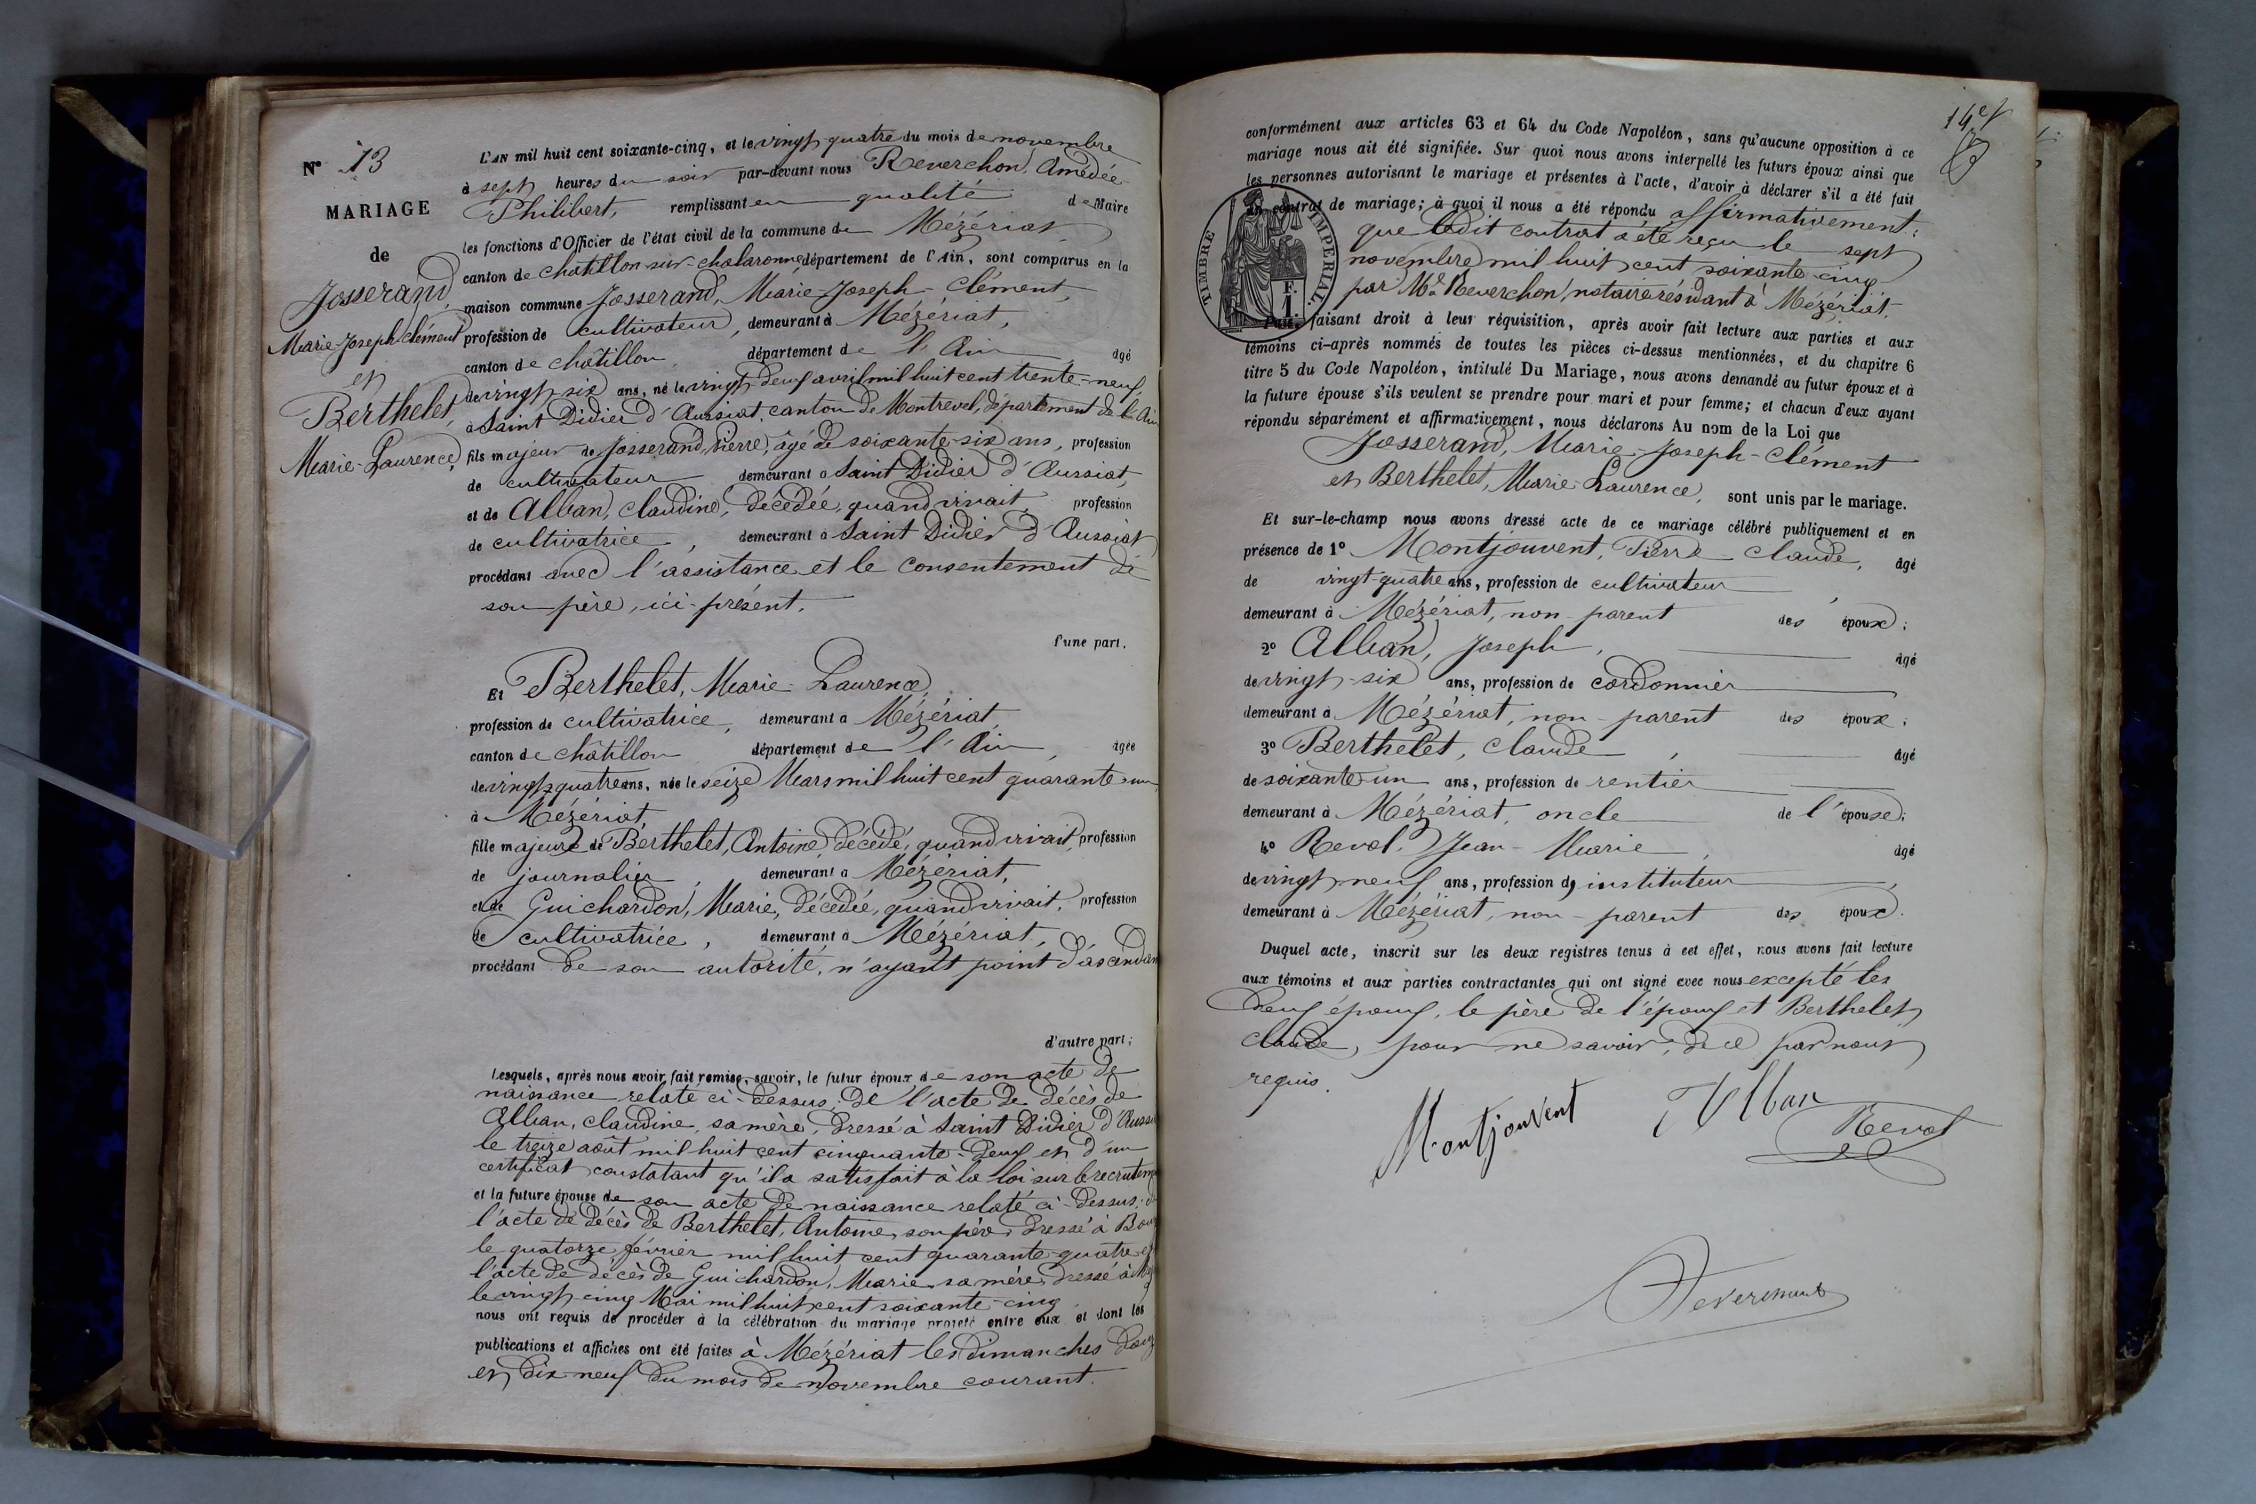 N° 13
MARIAGE
de
Josserand,
Marie-Joseph-Clément
et
Berthelet,
Marie-Laurence,
L'AN mil huit cent soixante-cinq, et le vingt quatre du mois de novembre
à sept heures du soir par-devant nous Reverchon, Amédée
Philibert, remplissant en qualité de Maire
les fonctions d'Officier de l'état civil de la commune de Mézériat,
canton de chatillon-sur-chalaronne département de l'Ain, sont comparus en la
maison commune Josserand, Marie-Joseph-Clément,
profession de cultivateur, demeurant à Mézériat,
canton de chatillon, département de l'Ain âgé
de vingt-six ans, né le vingt deux avril mil huit cent trente-neuf
à Saint Didier d'Aussiat, canton de Montrevel, département de l'Ain
fils majeur de Josserand, Pierre, âgé de soixante-six ans, profession
de cultivateur demeurant à Saint Didier d'Aussiat,
et de Alban, claudine, décédée, quand vivait, profession
de cultivatrice, demeurant à Saint Didier d'Aussiat
procédant avec l'assistance et le consentement de
son père, ici présent.
l'une part.
Et Berthelet, Marie-Laurence,
profession de cultivatrice, demeurant à Mézériat,
canton de châtillon département de l'Ain, âgée
de vingt-quatre ans, née le seize Mars mil huit cent quarante-un
à Mézériat,
fille majeure de Berthelet, Antoine, décédé, quand vivait, profession
de journalier, demeurant à Mézériat,
et de Guichardon, Marie, décédée, quand vivait, profession
de cultivatrice, demeurant à Mézériat,
procédant de son autorité, n'ayant point d'ascendan
d'autre part;
Lesquels, après nous avoir fait remise, savoir, le futur époux de son acte de
naissance relaté ci-dessus; de l'acte de décès de
Alban, claudine, sa mère, dressé à Saint Didier d'Aussi
le treize août mil huit cent cinquante-deux et d'un
certificat constatant qu'il a satisfait à la loi sur le recrutem
et la future épouse de son acte de naissance relaté ci-dessus; d
l'acte de décès de Berthelet, Antoine, son père, dressé à Bou
le quatorze février mil huit cent quarante-quatre et
l'acte de décès de Guichardon, Marie, sa mère, dressé à Mé
le vingt-cinq Mai mil huit cent soixante-cinq
nous ont requis de procéder à la célébration du mariage projeté entre eux et dont les
publications et affiches ont été faites à Mézériat les dimanches douz
et dix neuf du mois de novembre courant.
14e
conformément aux articles 63 et 64 du Code Napoléon, sans qu'aucune opposition à ce
mariage nous ait été signifiée. Sur quoi nous avons interpellé les futurs époux ainsi que
les personnes autorisant le mariage et présentes à l'acte, d'avoir à déclarer s'il a été fait
un contrat de mariage; à quoi il nous a été répondu affirmativement:
que ledit contrat a été reçu le sept
novembre mil huit cent soixante-cinq
par Me Reverchon, notaire résidant à Mézériat.
TIMBRE IMPERIAL.
F.
1.
Puis, faisant droit à leur réquisition, après avoir fait lecture aux parties et aux
témoins ci-après nommés de toutes les pièces ci-dessus mentionnées, et du chapitre 6
titre 5 du Code Napoléon, intitulé Du Mariage, nous avons demandé au futur époux et à
la future épouse s'ils veulent se prendre pour mari et pour femme; et chacun d'eux ayant
répondu séparément et affirmativement, nous déclarons Au nom de la Loi que
Josserand, Marie-Joseph-Clément
et Berthelet, Marie-Laurence, sont unis par le mariage.
Et sur-le-champ nous avons dressé acte de ce mariage célébré publiquement et en
présence de 1° Montjouvent, Pierre-Claude, âgé
de vingt-quatre ans, profession de cultivateur
demeurant à Mézériat, non-parent des époux;
2° Alban, Joseph, âgé
de vingt-six ans, profession de cordonnier
demeurant à Mézériat, non-parent des époux;
3° Berthelet, claude, âgé
de soixante-un ans, profession de rentier
demeurant à Mézériat, oncle de l'épouse;
4° Revol, Jean-Marie, âgé
de vingt-neuf ans, profession d'instituteur,
demeurant à Mézériat, non-parent des époux.
Duquel acte, inscrit sur les deux registres tenus à cet effet, nous avons fait lecture
aux témoins et aux parties contractantes qui ont signé avec nous excepté les
deux époux, le père de l'époux et Berthelet
claude, pour ne savoir, de ce par nous
requis.
Montjouvent
J Alban
Revol
Reverchon